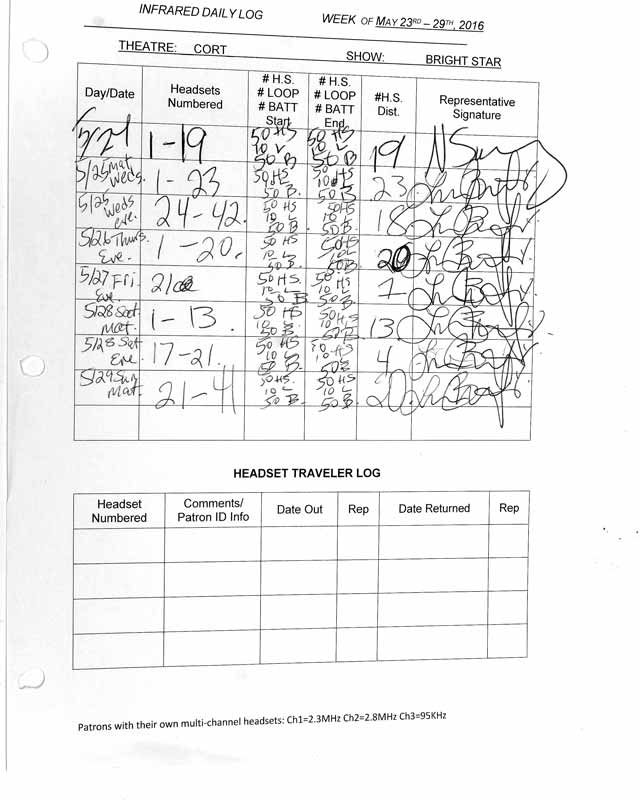 INFRARED DAILY LOG WEEK OF MAY 23RD – 29TH, 2016
THEATRE: CORT SHOW: BRIGHT STAR
Day/Date
Headsets
Numbered
# H.S.
# LOOP
# BATT
Start
# H.S.
# LOOP
# BATT
End
#H.S.
Dist.
Representative
Signature
5/24
1-19
50 HS
10 L
50 B
50 HS
10 L
50 B
19
5/25 Mat
Weds.
1-23
50 HS
10 L
50 B.
50 HS
10 L
50 B
23
5/25
Weds
eve.
24-42.
50 HS
10 L
50 B.
50 HS
10 L
50 B.
18
5/26 Thurs.
Eve.
1-20.
50 HS
10 L
50 B
50 HS
10 L
50 B.
20
5/27 Fri
Eve.
21
50 HS
10 L
50 B
50 HS
10 L
50 B
1
5/28 Sat
Mat.
1-13.
50 HS
10 L
50 B
50 HS
10 L
50 B
13.
5/28 Sat
Eve
17-21.
50 HS
10 L
50 B
50 H.S
10 L
50 B
4
5/29 Sun
Mat.
21-41
50 HS.
10 L
50 B
50 HS
10 L
50 B
HEADSET TRAVELER LOG
Headset
Numbered
Comments/
Patron ID Info
Date Out
Rep
Date Returned
Rep
Patrons with their own multi-channel headsets: Ch1=2.3MHz Ch2=2.8MHz Ch3=95KHz